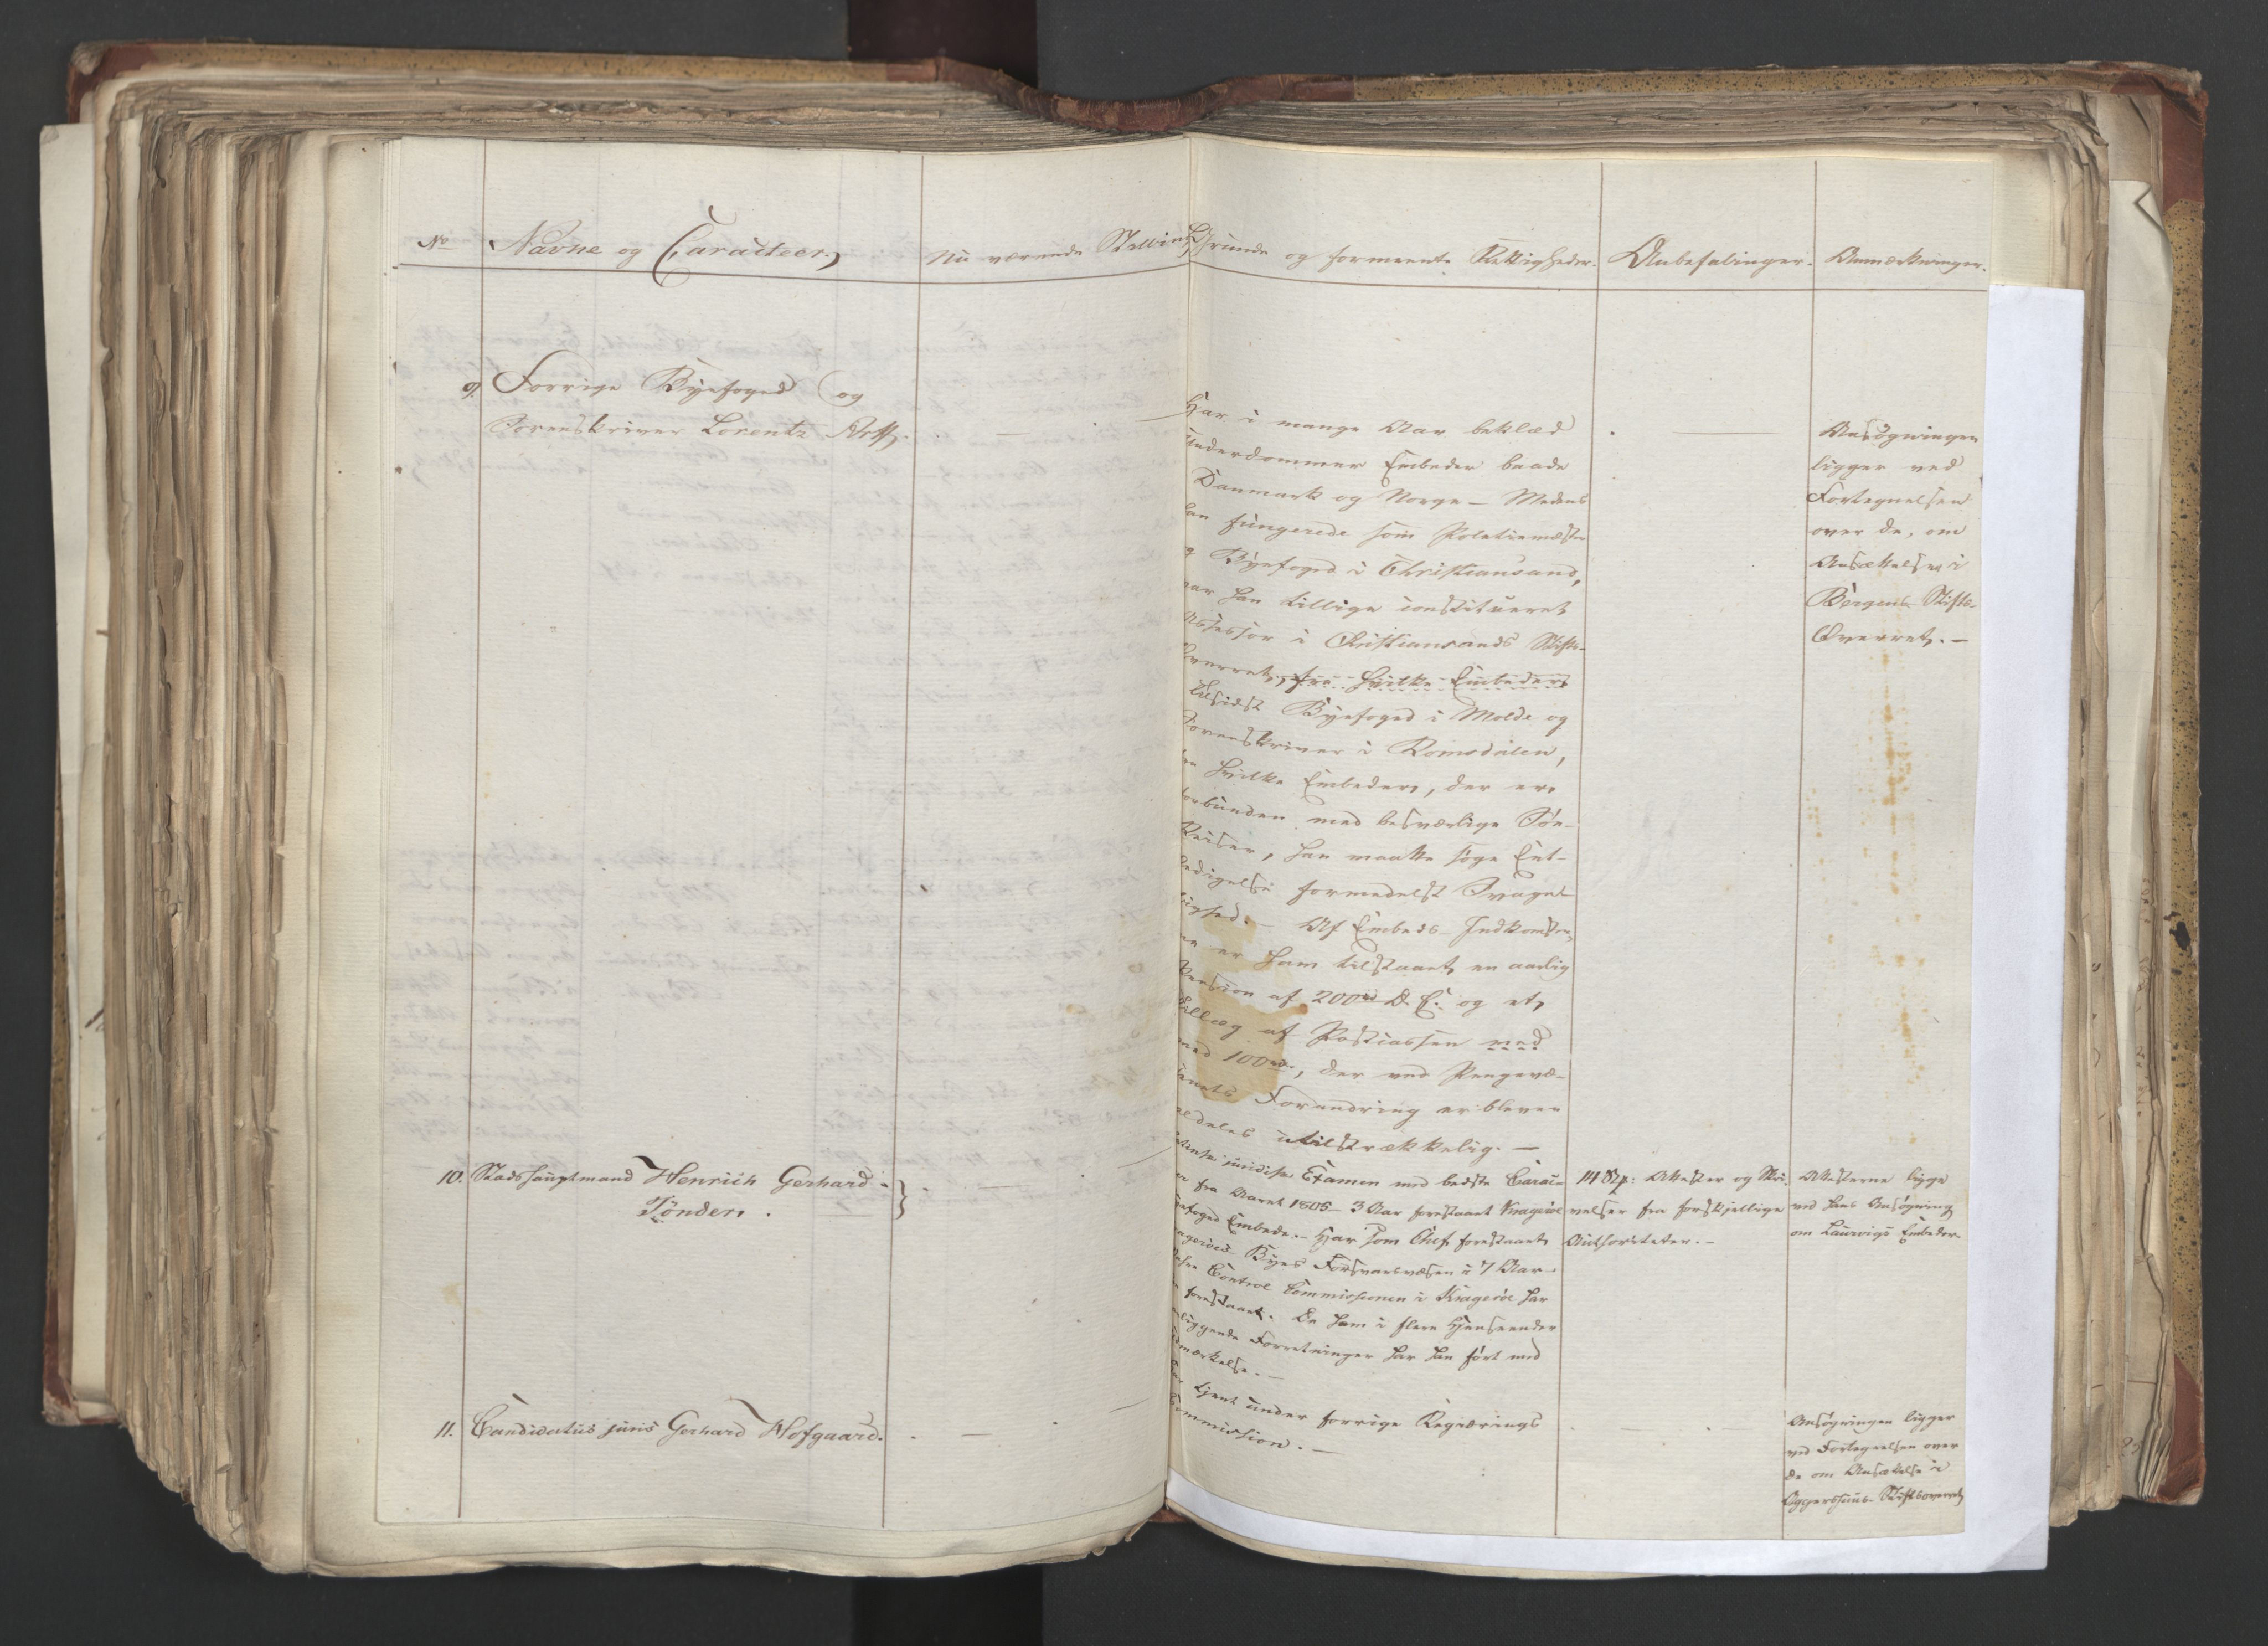 No
Navne og Caracteer,
Nu værende Stilling,
Grunde og formeente Rettigheder.
Anbefalinger.
Anmærkninger.
9. Forrige Byefoged og
Sorenskriver Lorentz
Har i mange Aar beklæd
Underdommer Embeder baade
Danmark og Norge – Medens
han fungerede som Politiemester
og Byefoged i Christiansand,
var han tillige constitueret
Assessor i Christiansands Stifts-
Overret, fra hvilke Embeder,
tilsidst Byefoged i Molde og
Sorenskriver i Romsdalen,
fra hvilke Embeder, der er,
forbunden med besværlige Søe-
Reiser, han maatte søge Ent-
ledigelse formedelst Svage-
lighed. – Af Embeds-Indkomster-
ne er ham tilstaaet en aarlig
Pension af 200 rd D. C. og et,
Tillæg af Postcassen med
med 100 rd, der ved Pengevæ-
senets Forandring er bleven
aldeles utilstrækkelig. –
Ansøgningen
ligger ved
Fortegnelsen
over de, om
Ansættelse i
Bergens Stifts-
Overret. –
10. Stadshauptmand Henrich Gerhard
Tønder.
juridisk Examen med bedste Carac-
fra Aaret 1805 – 3 Aar forestaaet Kragerøe
Byefoged Embede. – Har som Chef forestaaet
Kragerøes Byes Forsvarsvæsen i 7 Aar –
Control Commissionen i Kragerøe har
forestaaet. De ham i flere Henseender
paaliggende Forretninger har han ført med
Udmærkelse. –
Attester og Skri-
velser fra forskjellige
Authoriteter. –
Attesterne ligge
ved hans Ansøgning
om Laurvigs Embeder.
11. Candidatus juris Gerhard Hofgaard.
Har tjent under forrige Regjerings
Commission. –
Ansøgningen ligger
ved Fortegnelsen over
de om Ansættelse i
Aggershuus Stiftsoverret